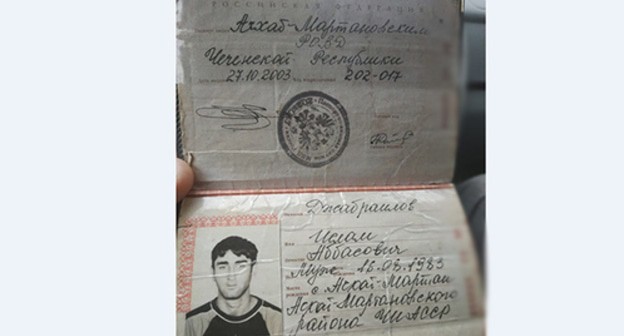 РОССИЙСКАЯ ФЕДЕРАЦИЯ
Ачхой-Мартановским
РОВД
Чеченской Республики
27.10.2003 202-017
Джабраилов
Ислам
Аббасович
Муж. 16.08.1983
с. Ачхой-Мартан
Ачхой-Мартановского
района ЧИАССР